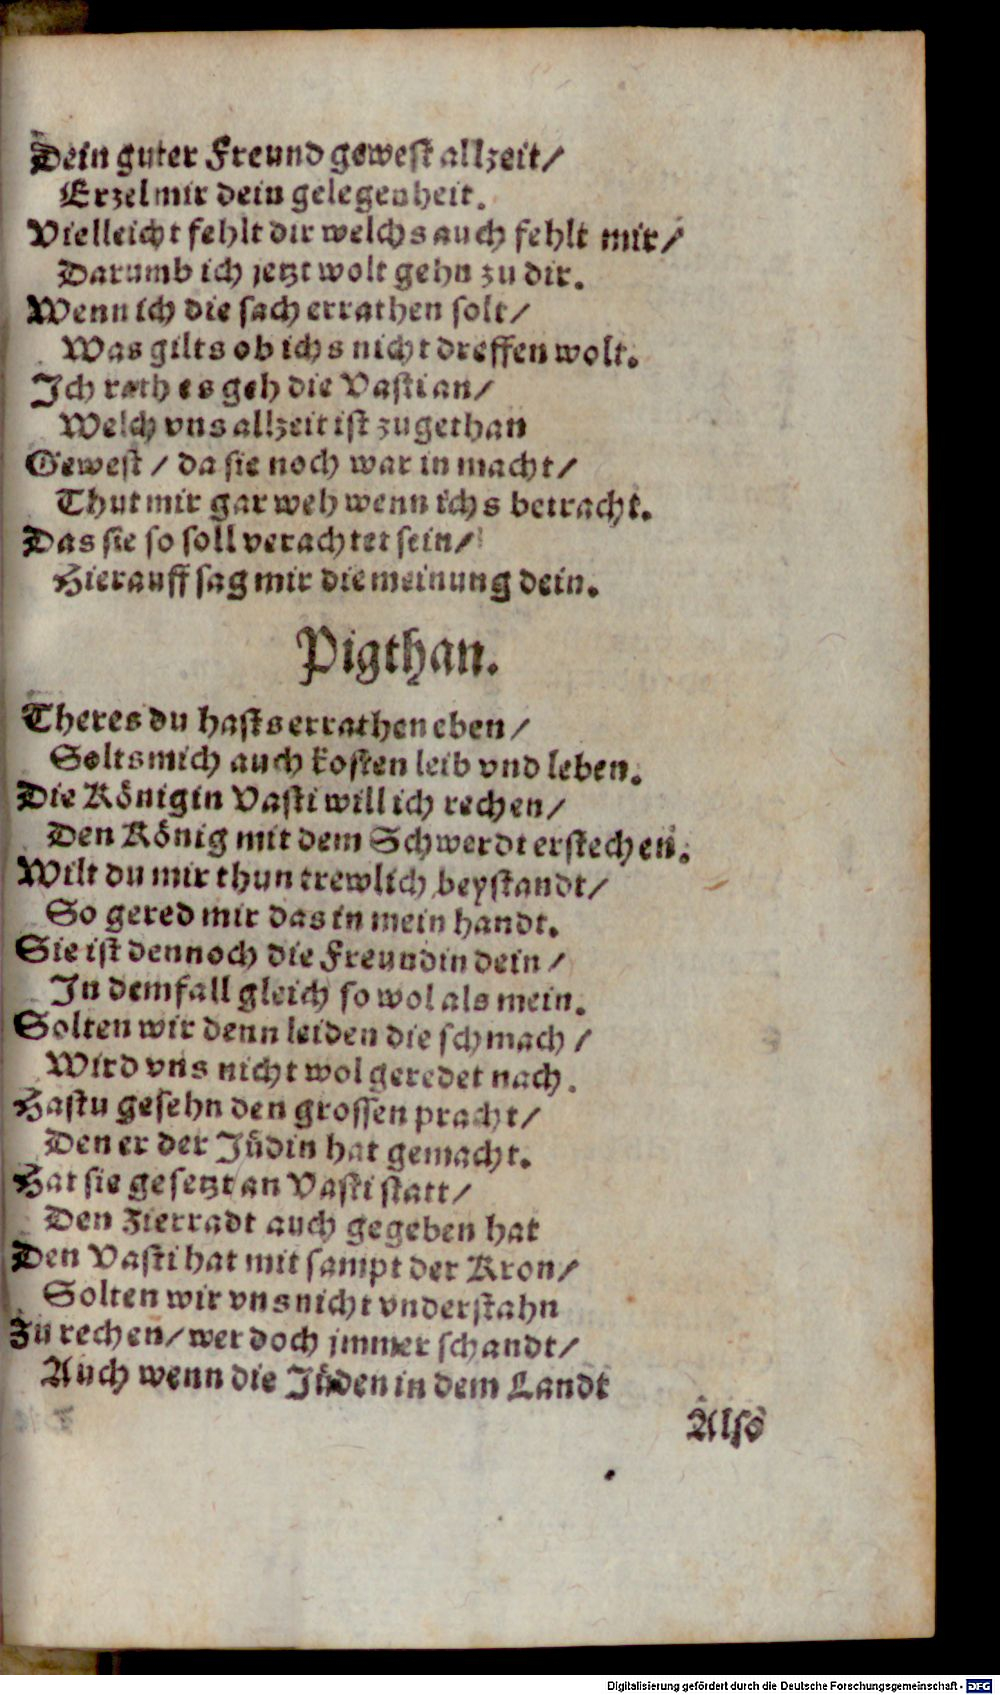 Dein guter Freund gewest allzeit/
Erzel mir dein gelegenheit.
Vielleicht fehlt dir welchs auch fehlt mir/
Darumb ich jetzt wolt gehn zu dir.
Wenn ich die sach errathen solt/
Was gilts ob ichs nicht dreffen wolt.
Ich rath es geh die Vasti an/
Welch vns allzeit ist zugethan
Gewest / da sie noch war in macht/
Thut mir gar weh wenn ichs betracht.
Das sie so soll verachtet sein/
Hierauff sag mir die meinung dein.
Pigthan.
Theres du hasts errathen eben/
Solts mich auch kosten leib vnd leben.
Die Königin Vasti will ich rechen/
Den König mit dem Schwerdt erstechen.
Wilt du mir thun trewlich beystandt/
So gered mir das in mein handt.
Sie ist dennoch die Freundin dein/
In dem fall gleich so wol als mein.
Solten wir denn leiden die schmach/
Wird vns nicht wol geredet nach.
Hastu gesehn den grossen pracht/
Den er der Jüdin hat gemacht.
Hat sie gesetzt an Vasti statt/
Den Zierradt auch gegeben hat
Den Vasti hat mit sampt der Kron/
Solten wir vns nicht vnderstahn
Zu rechen/ wer doch jmmer schandt/
Auch wenn die Jüden in dem Landt
Also
Digitalisierung gefördert durch die Deutsche Forschungsgemeinschaft - DFG